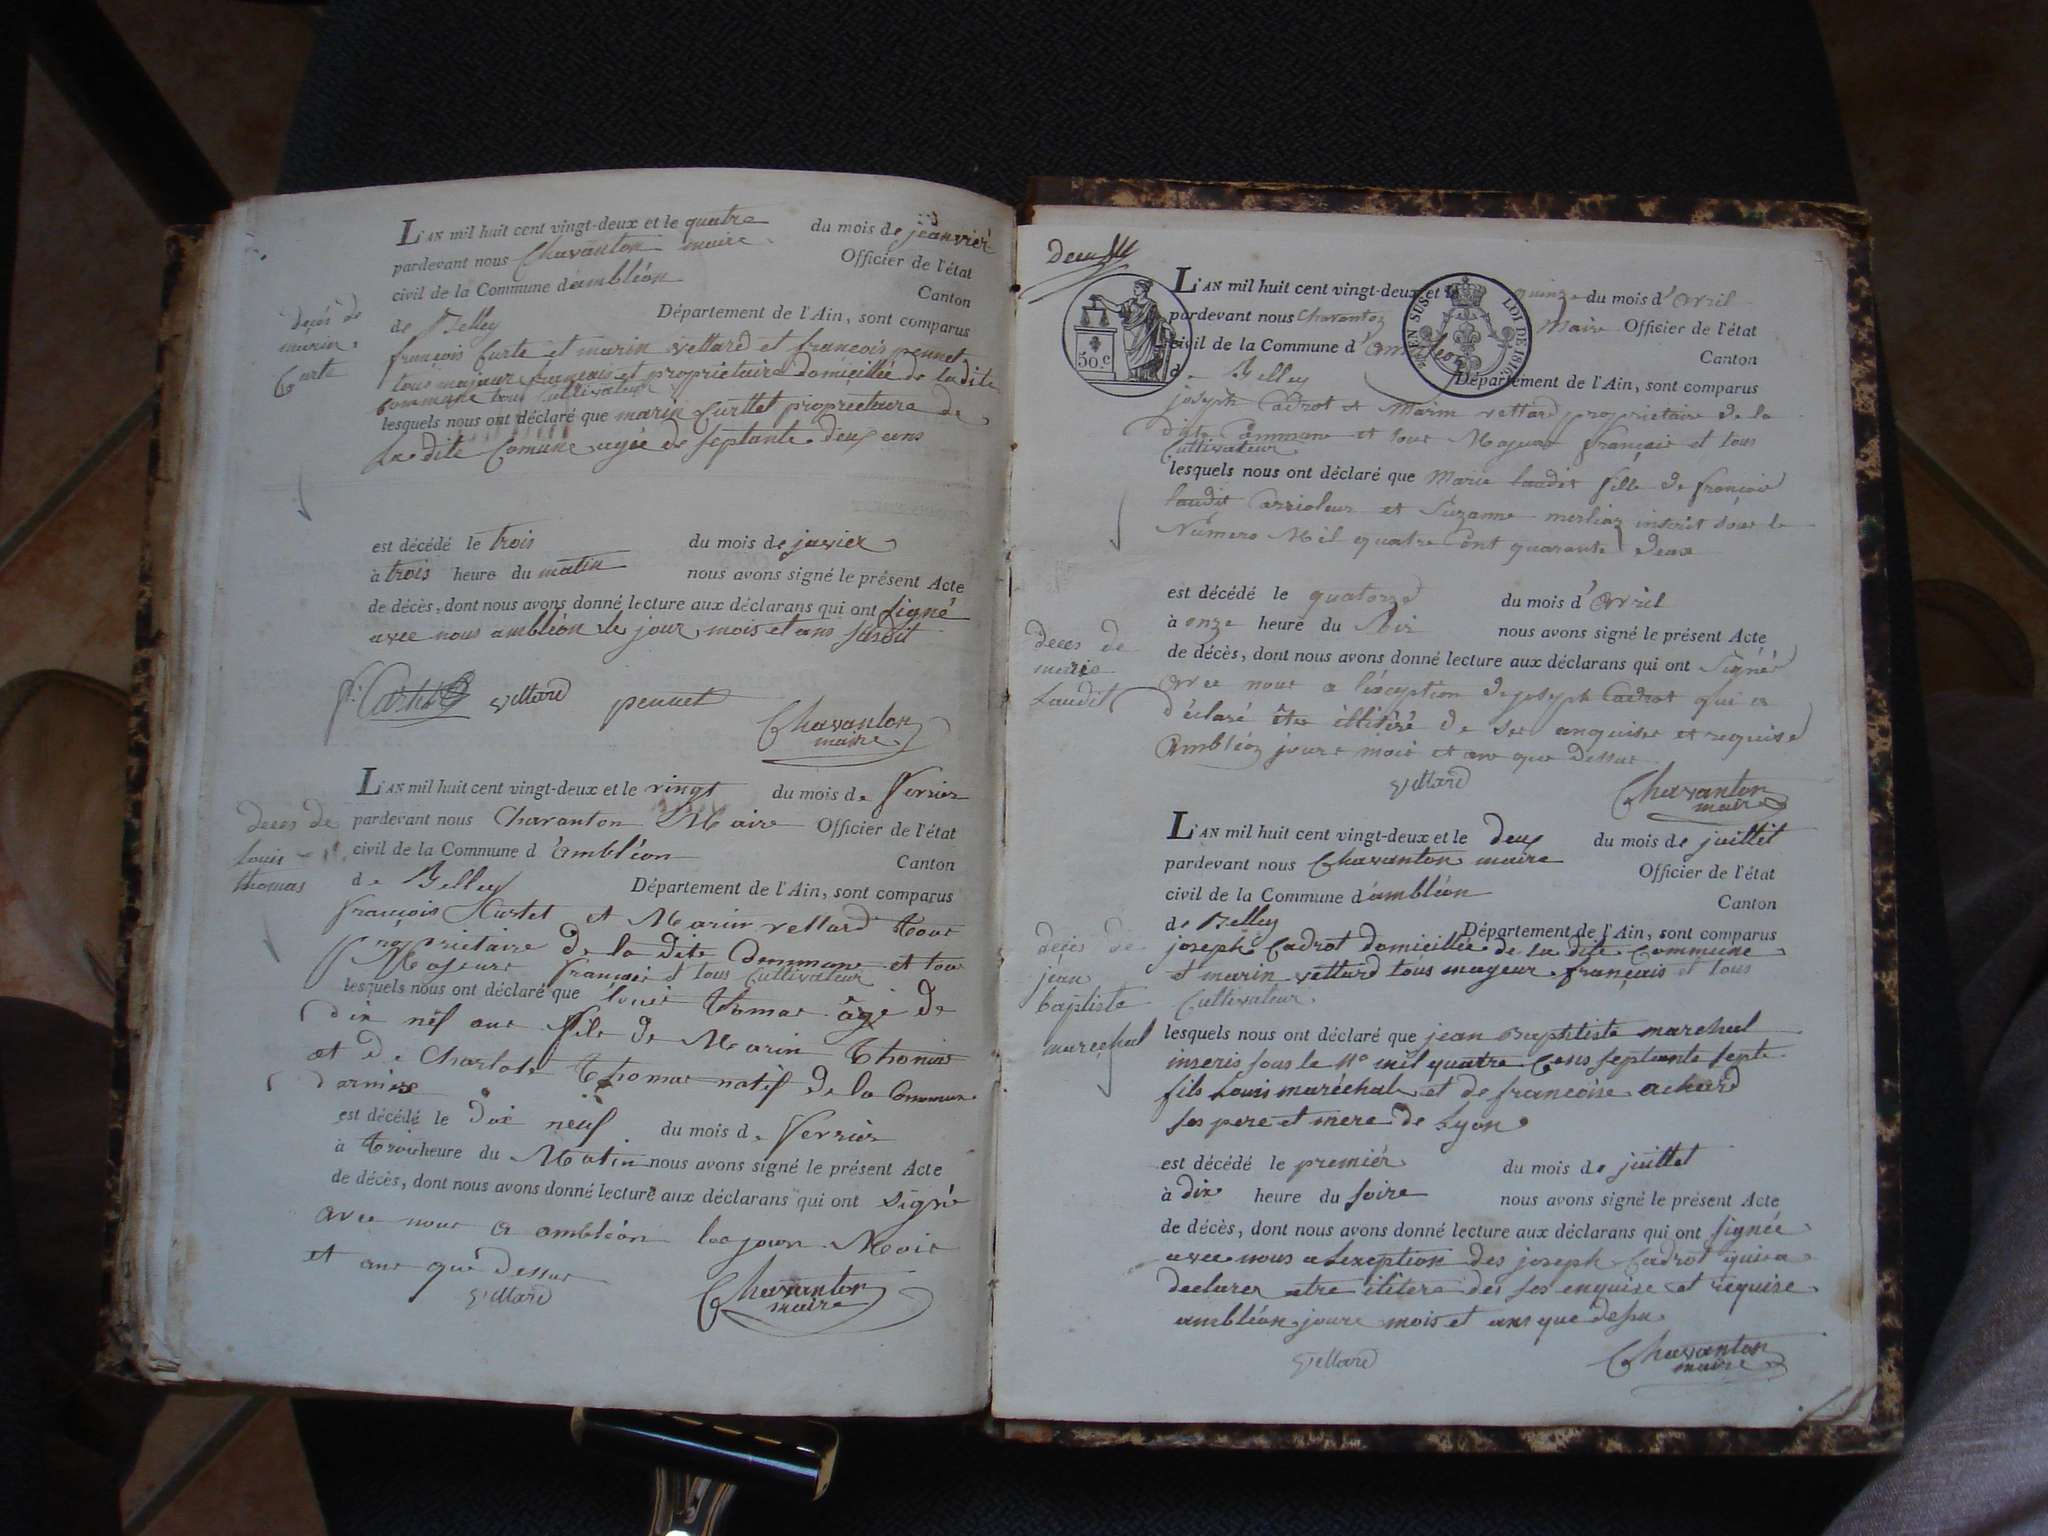 L'AN mil huit cent vingt-deux et le quatre du mois de jeanvier
pardevant nous Chavanton maire Officier de l'état
civil de la Commune d'ambléon Canton
de Belley Département de l'Ain, sont comparus
deçés de
marin
Curte
françois Curte et marin vettard et francois pennet
tous majeure français et proprietaire domiçillée de ladite
Commune tous Cultivateur
lesquels nous ont déclaré que marin Curttet proprietaire de
La dite Comune agée de septante deux ans
est décédé le trois du mois de javier
à trois heure du matin nous avons signé le présent Acte
de décès, dont nous avons donné lecture aux déclarans qui ont signé
avec nous ambléon le jour mois et ans susdit
vettard pennet
Chavanton
maire
L'AN mil huit cent vingt-deux et le vingt du mois de fevrier
pardevant nous Chavanton Maire Officier de l'état
civil de la Commune d'ambléon Canton
de Belley Département de l'Ain, sont comparus
deces de
Louis
thomas
françois Curtet et Marin vettard tous
proprietaire de la dite Commune et tous
Majeurs français et tous Cultivateur
lesquels nous ont déclaré que louis thomas âgé de
dix nef ans fils de Marin thomas
et de Charlote thomas natif de la Commune
est décédé le dix neuf du mois de fevrier
à trois heure du Matin nous avons signé le présent Acte
de décès, dont nous avons donné lecture aux déclarans qui ont signé
avec nous a ambléon les jour Mois
et ans que dessus
vettard
Chavanton
maire
50 c
EN SUS LOI DE 1816
L'AN mil huit cent vingt-deux et le quinze du mois d'avril
pardevant nous Chavanton Maire Officier de l'état
civil de la Commune d'ambléon Canton
de Belley Département de l'Ain, sont comparus
joseph Cadrot et Marin vettard proprietaire de la
dite Commune et tous Majeur français et tous
Cultivateur
lesquels nous ont déclaré que Marie laudit fille de françois
laudit et Suzanne merlioz inscrit sous le
Numero Mil quatre cent quarante deux
est décédé le quatorze du mois d'avril
à onze heure du soir nous avons signé le présent Acte
deces de
marie
Laudit
de décès, dont nous avons donné lecture aux déclarans qui ont signés
avec nous a l'éxception de joseph Cadrot qui a
déclaré être illitéré de ses anquises et requise
ambléon jours mois et ans que dessus
vettard
Chavanton
maire
L'AN mil huit cent vingt-deux et le deux du mois de juillet
pardevant nous Chavanton maire Officier de l'état
civil de la Commune d'ambléon Canton
de Belley Département de l'Ain, sont comparus
deçes de
jean
baptiste
mareçhal
joseph Cadrot domicillée de la dite commune
et marin vettard tous mayeur français et tous
Cultivateur
lesquels nous ont déclaré que jean Baptiste marechal
inscris sous le N° mil quatre Cens septante sept
fils Louis maréchal et de francoise achard
ses pere et mere de Lyon
est décédé le premiér du mois de juillet
à dix heure du soire nous avons signé le présent Acte
de décès, dont nous avons donné lecture aux déclarans qui ont signée
avec nous a Lexeption des joseph Cadrot qui a
declarer etre ilitere des ses enquise et requise
ambléon joure mois et ans que desu
vettard
Chavanton
maire